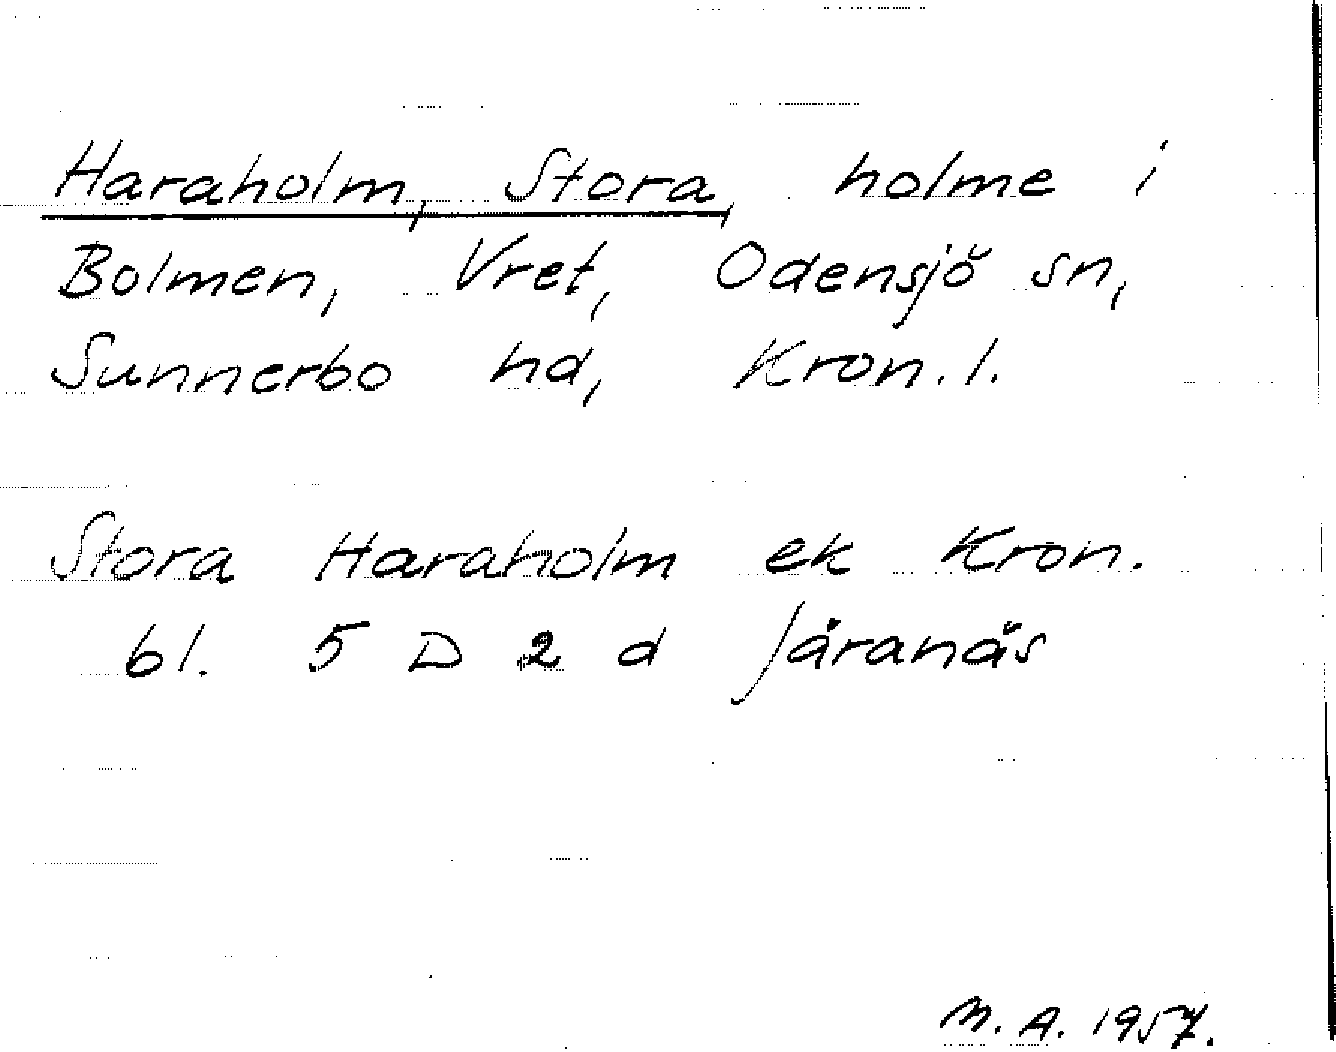 Haraholm, Stora, holme i
Bolmen, Vret, Odensjö sn,
Sunnerbo hd, Kron. l.
Stora Haraholm ek Kron.
bl. 5 D 2 d Järanäs
M. A. 1957.